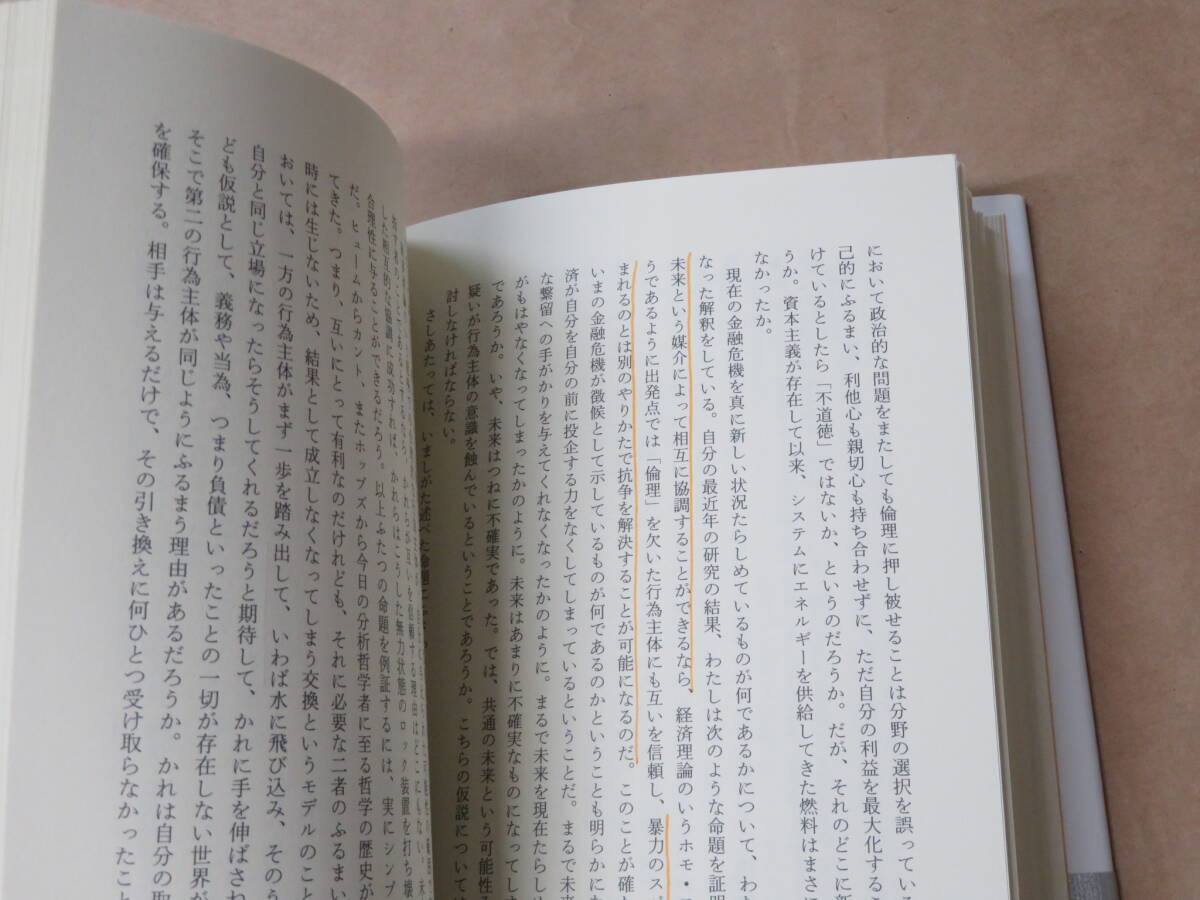 において政治的な問題をまたしても倫理に押し被せることは分野の選択を誤っている
己的にふるまい、利他心も親切心も持ち合わせずに、ただ自分の利益を最大化するこ
けているとしたら「不道徳」ではないか、というのだろうか。だが、それのどこに新
うか。資本主義が存在して以来、システムにエネルギーを供給してきた燃料はまさに
なかったか。
現在の金融危機を真に新しい状況たらしめているものが何であるかについて、わ
なった解釈をしている。自分の最近年の研究の結果、わたしは次のような命題を証明
未来という媒介によって相互に協調することができるなら、経済理論のいうホモ・
うであるように出発点では「倫理」を欠いた行為主体にも互いを信頼し、暴力のス
まれるのとは別のやりかたで抗争を解決することが可能になるのだ。このことが確
いまの金融危機が徴候として示しているものが何であるのかということも明らかに
済が自分を自分の前に投企する力をなくしてしまっているということだ。まるで未来
な繋留への手がかりを与えてくれなくなったかのように。まるで未来を現在たらし
がもはやなくなってしまったかのように。未来はあまりに不確実なものになってし
であろうか。いや、未来はつねに不確実であった。では、共通の未来という可能性
疑いが行為主体の意識を蝕んでいるということであろうか。こちらの仮説については
討しなければならない。
さしあたっては、いましがた述べた命題
した相互的な協調に成功すれば、かれらはこうした無力状態のロック装置を打ち壊
合理性に与ることができるだろう。以上ふたつの命題を例証するには、実にシンプ
だ。ヒュームからカント、またホッブズから今日の分析哲学者に至る哲学の歴史が
てきた。つまり、互いにとって有利なのだけれども、それに必要な二者のふるまい
時には生じないため、結果として成立しなくなってしまう交換というモデルのこと
おいては、一方の行為主体がまず一歩を踏み出して、いわば水に飛び込み、そのう
自分と同じ立場になったらそうしてくれるだろうと期待して、かれに手を伸ばさ
ども仮説として、義務や当為、つまり負債といったことの一切が存在しない世界が
そこで第二の行為主体が同じようにふるまう理由があるだろうか。かれは自分の取
を確保する。相手は与えるだけで、その引き換えに何ひとつ受け取らなかったこと